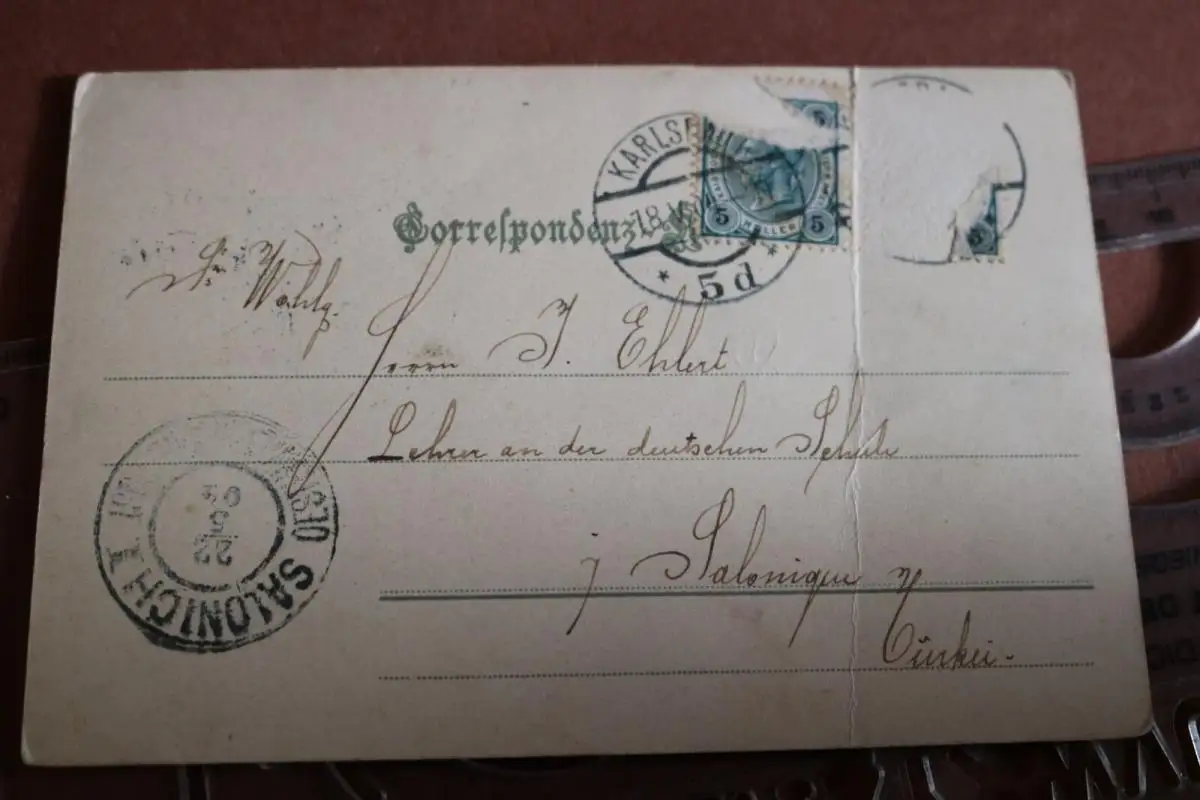 Correspondenz
KARLS
18.V
* 5d *
5 5
5 HELLER 5
5
Wohlg.
Herrn J. Ehlert
Lehrer an der deutschen Schule
Salonique
Türkei.
SALONICH I
22
5